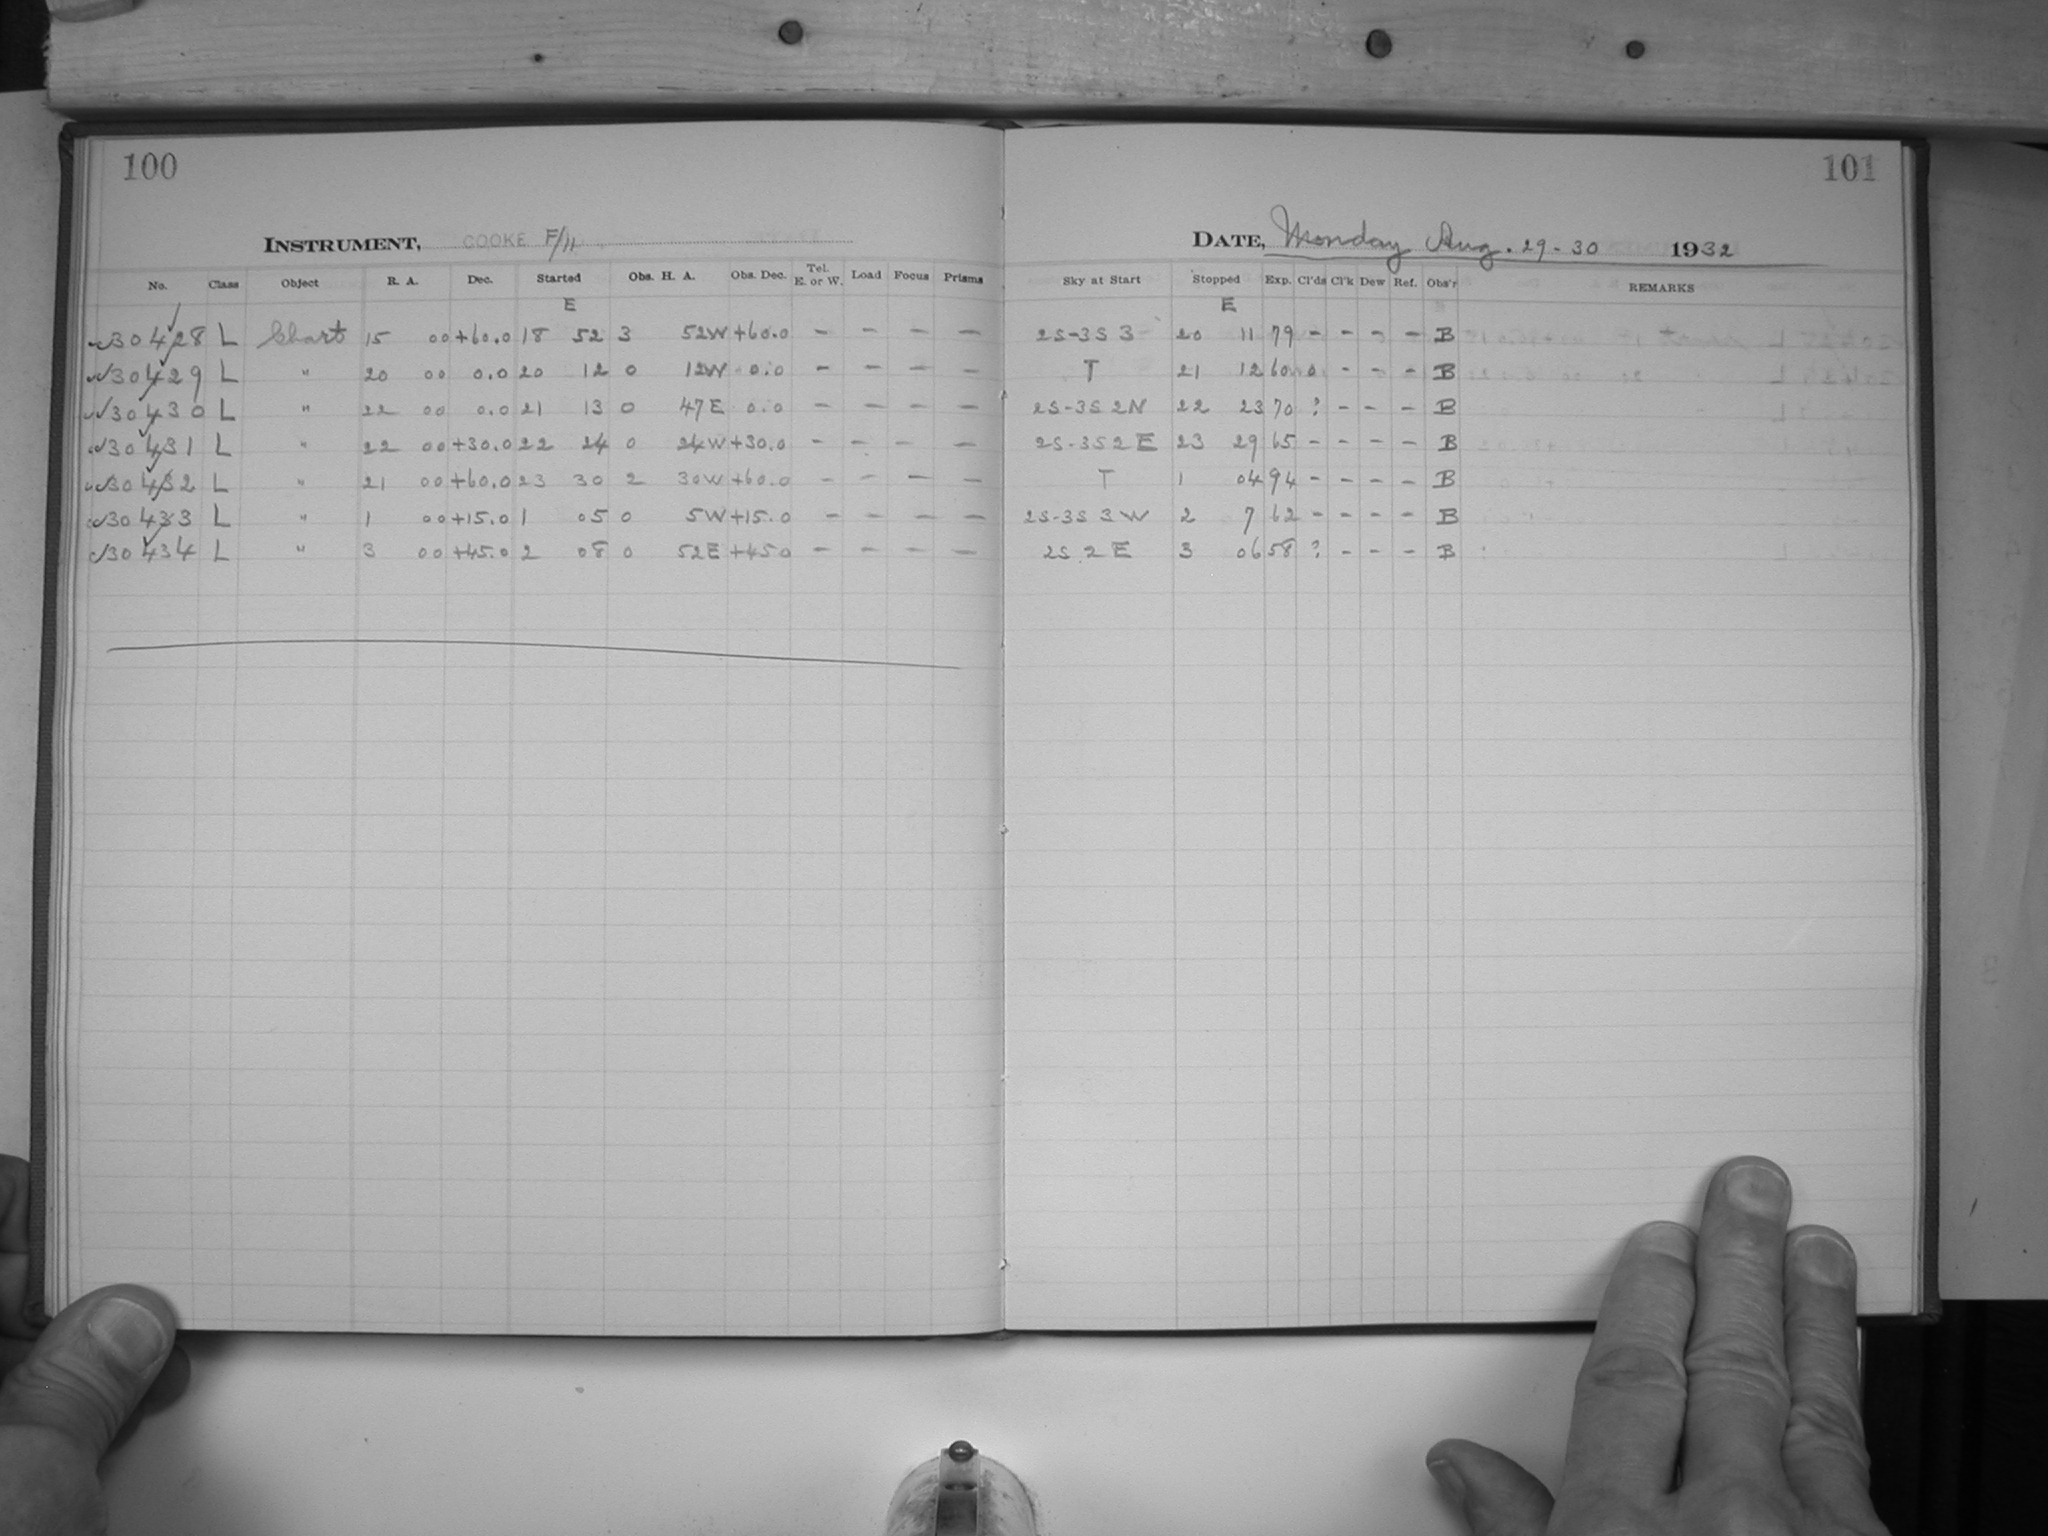 100
INSTRUMENT, COOKE F/11
No. Class Object R. A. Dec. Started Obs. H. A. Obs. Dec. Tel. E. or W. Load Focus Prisms
E
✓30428 L Chart 15 00 +60.0 18 52 3 52W +60.0 - - - -
✓30429 L " 20 00 0.0 20 12 0 12W 0.0 - - - -
✓30430 L " 22 00 0.0 21 13 0 47E 0.0 - - - -
✓30431 L " 22 00 +30.0 22 24 0 24W +30.0 - - - -
✓30432 L " 21 00 +60.0 23 30 2 30W +60.0 - - - -
✓30433 L " 1 00 +15.0 1 05 0 5W +15.0 - - - -
✓30434 L " 3 00 +45.0 2 08 0 52E +45.0 - - - -
101
DATE, Monday Aug. 29-30 1932
Sky at Start Stopped Exp. Cl'ds Cl'k Dew Ref. Obs'r REMARKS
E
2S-3S 3 20 11 79 - - - - B
T 21 12 60 0 - - - B
2S-3S 2N 22 23 70 ? - - - B
2S-3S 2E 23 29 65 - - - - B
T 1 04 94 - - - - B
2S-3S 3W 2 7 62 - - - - B
2S 2E 3 06 58 ? - - - B